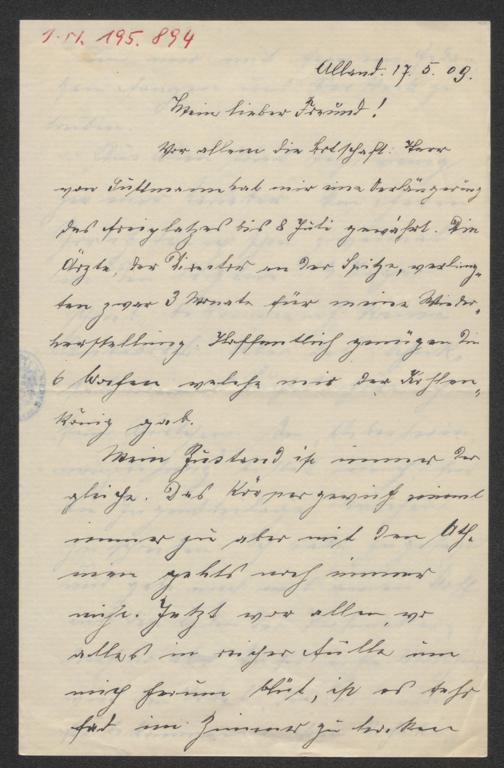 I.N. 195.894
Alland. 17.5.09.
Mein lieber Freund!
Vor allem die Botschaft: Herr
von Guttmann hat mir eine Verlängerung
des Freiplatzes bis 8 Juli gewährt. Die
Ärzte, der Director an der Spitze, verlang-
ten zwar 3 Monate für meine Wieder-
herstellung. Hoffentlich genügen die
6 Wochen welche mir der Kohlen-
könig gab.
Mein Zustand ist immer der
gleiche. Das Körpergewicht nimmt
immer zu aber mit dem Ath-
men gehts noch immer
nicht. Jetzt vor allem, wo
alles in reicher Fülle um
mich herum blüt, ist es sehr
fad im Zimmer zu hocken